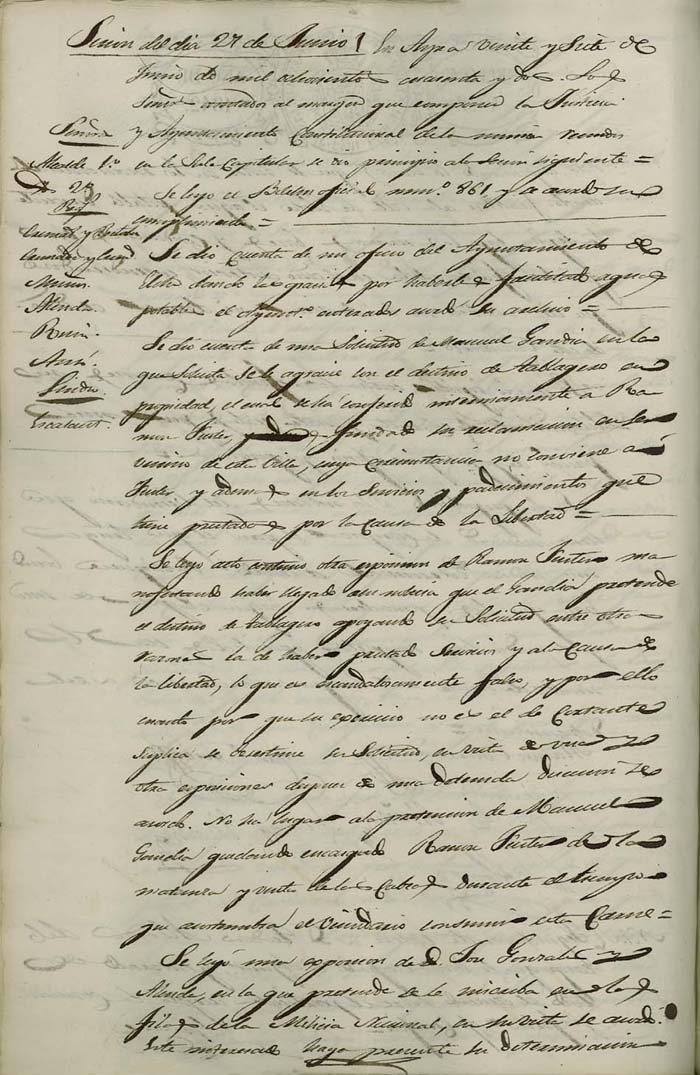 Sesion del dia 27 de Junio
En Aspe a veinte y Siete de
Junio de mil ochocientos cuarenta y dos Los
Señores anotados al margen que componen la Justicia
y Ayuntamiento Constitucional de la misma reunidos
en la Sala Capitular se dio principio a la Sesion siguiente =
Se leyó el Boletin oficial num.º 861 y se acordó su
cumplimiento =
Señores
Alcalde 1.º
2º
Reg.
Almda.
Sindco.
Se dio cuenta de un oficio del Ayuntamiento de
Elche dando las gracias por haberles facilitado aguas
potables el enterados acordó su archivo =
Se dió cuenta de una Solicitud de Manuel Gandia en la
que solicita se le agracie con el destino de tablagero en
propiedad, el cual se ha conferido interinamente a Ra
mon Fuster, fundado su reclamacion en ser
vecino de esta Villa, cuya circunstancia no conviene a
Fuster, y ademas en los Servicios y padecimientos que
tiene prestados por la Causa de la Libertad =
Se leyó acto continuo otra esposicion de Ramon Fuster ma
nifestando haber llegado a su noticia que el Gandia pretende
el destino de tablagero apoyando su Solicitud entre otras
razones la de haber prestado Servicios y a la Causa de
la libertad, lo que es escandalosamente falso, y por ello
cuanto por que su egercicio no es el de Cortante
Suplica se desestime su Solicitud, en vista de una y
otra esposiciones despues de una detenida discusion se
acordó. No ha lugar a la pretension de Manuel
Gandia quedando encargado Ramon Fuster de la
matanza y venta de las Cabras durante el tiempo
que acostumbra el vecindario consumir esta Carne =
Se leyó una esposicion de D. Jose Gonzalez y
Almda, en la que pretende se le inscriba en las
filas de la Milicia Nacional, en su vista se acordó.
Este interesado haga presente su determinacion